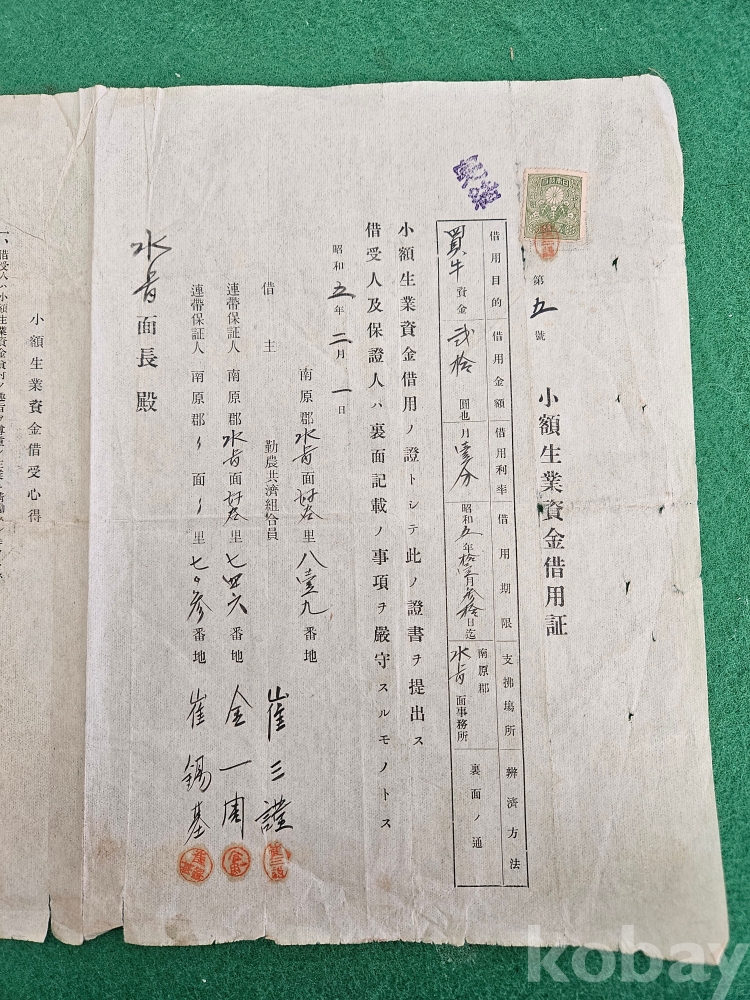 第五號
小額生業資金借用証
借用目的 借用金額 借用利率 借用期限 支拂場所 辨濟方法
買牛資金 貳拾圓也 月壹分 昭和五年拾壹月參拾日迄 南原郡水旨面事務所 裏面ノ通
小額生業資金借用ノ證トシテ此ノ證書ヲ提出ス
借受人及保證人ハ裏面記載ノ事項ヲ嚴守スルモノトス
昭和五年二月一日
南原郡水旨面 里八壹九番地
借主 勤農共濟組合員 崔三
連帶保証人 南原郡水旨面 里七四六番地 金一周
連帶保証人 南原郡〃面〃里七〇參番地 崔錫基
水旨面長殿
小額生業資金借受心得
一、借受人ハ小額生業資金貸付ノ趣旨ヲ尊重シ生業ニ
kobay